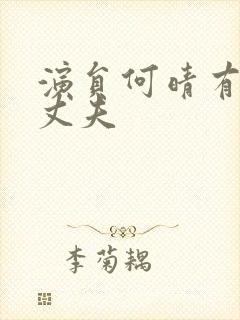 演员何晴有
丈夫
李菊耦